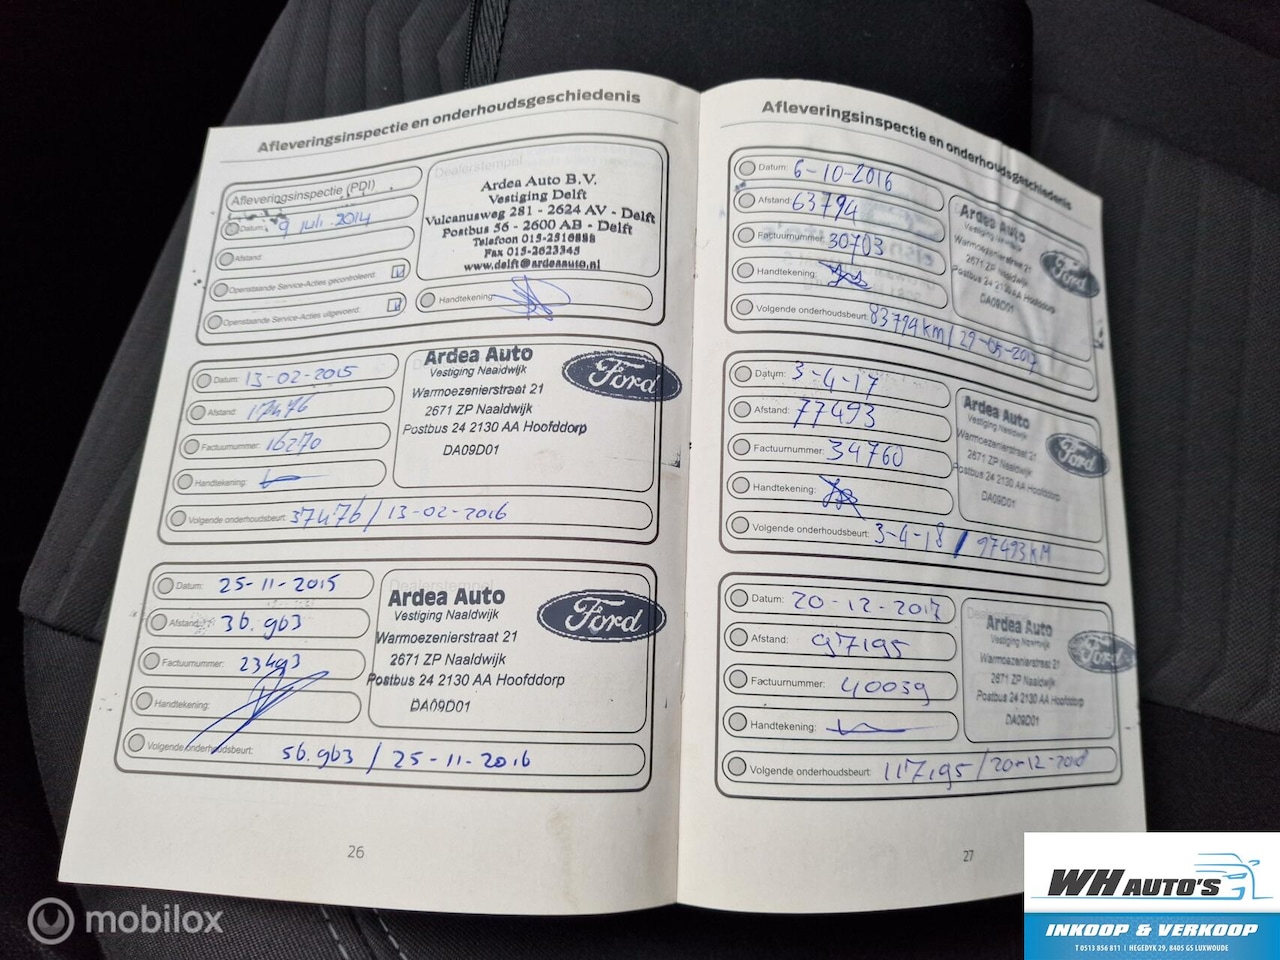 Afleveringsinspectie en onderhoudsgeschiedenis
Afleveringsinspectie (PDI)
Datum: 9 juli 2014
Afstand:
Openstaande Service-Acties gecontroleerd.
Openstaande Service-Acties uitgevoerd.
Dealerstempel
Ardea Auto B.V.
Vestiging Delft
Vulcanusweg 281 - 2624 AV - Delft
Postbus 56 - 2600 AB - Delft
Telefoon 015-2516888
Fax 015-2623345
www.delft@ardeaauto.nl
Handtekening:
Datum: 13-02-2015
Afstand: 17476
Factuurnummer: 16270
Handtekening:
Volgende onderhoudsbeurt: 37476 / 13-02-2016
Ardea Auto
Vestiging Naaldwijk
Warmoezenierstraat 21
2671 ZP Naaldwijk
Postbus 24 2130 AA Hoofddorp
DA09D01
Ford
Datum: 25-11-2015
Afstand: 36.963
Factuurnummer: 23493
Handtekening:
Volgende onderhoudsbeurt: 56.963 / 25-11-2016
Dealerstempel
Ardea Auto
Vestiging Naaldwijk
Warmoezenierstraat 21
2671 ZP Naaldwijk
Postbus 24 2130 AA Hoofddorp
DA09D01
Ford
26
Afleveringsinspectie en onderhoudsgeschiedenis
Datum: 6-10-2016
Afstand: 63794
Factuurnummer: 30703
Handtekening:
Volgende onderhoudsbeurt: 83794km / 29-05-2017
Ardea Auto
Vestiging Naaldwijk
Warmoezenierstraat 21
2671 ZP Naaldwijk
Postbus 24 2130 AA Hoofddorp
DA09D01
Ford
Datum: 3-4-17
Afstand: 77493
Factuurnummer: 34760
Handtekening:
Volgende onderhoudsbeurt: 3-4-18 / 97493KM
Ardea Auto
Vestiging Naaldwijk
Warmoezenierstraat 21
2671 ZP Naaldwijk
Postbus 24 2130 AA Hoofddorp
DA09D01
Ford
Datum: 20-12-2017
Afstand: 97195
Factuurnummer: 40039
Handtekening:
Volgende onderhoudsbeurt: 117.195 / 20-12-2018
Ardea Auto
Vestiging Naaldwijk
Warmoezenierstraat 21
2671 ZP Naaldwijk
Postbus 24 2130 AA Hoofddorp
DA09D01
Ford
27
mobilox
WH AUTO'S
INKOOP & VERKOOP
T 0513 856 811 | HEGEDYK 29, 8405 GS LUXWOUDE